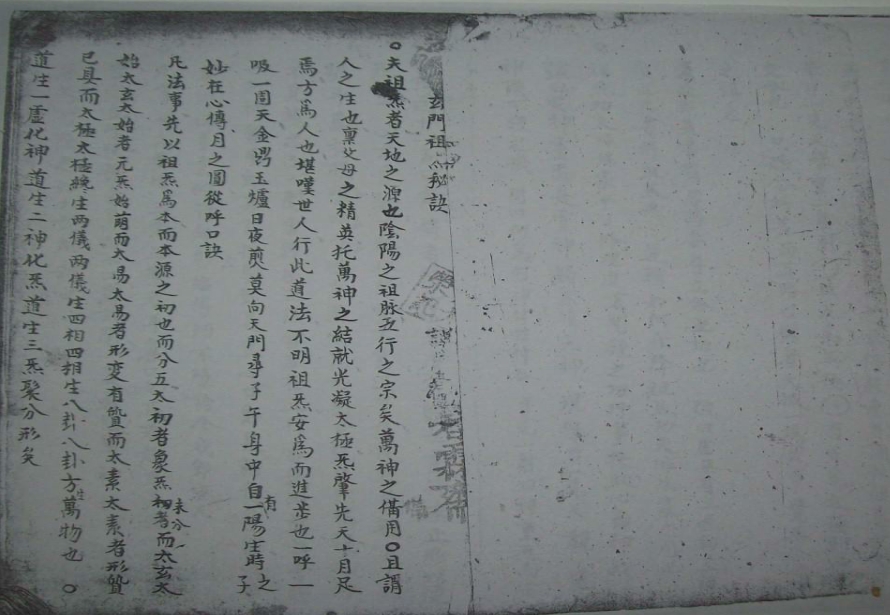 玄門祖炁秘訣
○夫祖炁者天地之源也陰陽之祖脉五行之宗矣萬神之備用○且謂
人之生也禀父母之精英托萬神之結就光凝太極炁肇先天十月足
焉方爲人也堪嘆世人行此道法不明祖炁安爲而進步也一呼一
吸一周天金鼎玉爐日夜煎莫向天門尋子午身中自有一陽生時之子
妙在心傳月之圖從呼口訣
凡法事先以祖炁爲本而本源之初也而分五太初者象炁未分初者而太玄太
始太玄太始者元炁始萌而太易太易者形变有質而太素太素者形質
已具而太極太極纔生两儀两儀生四相四相生八卦八卦方生萬物也○
道生一虛化神道生二神化炁道生三炁聚分形矣